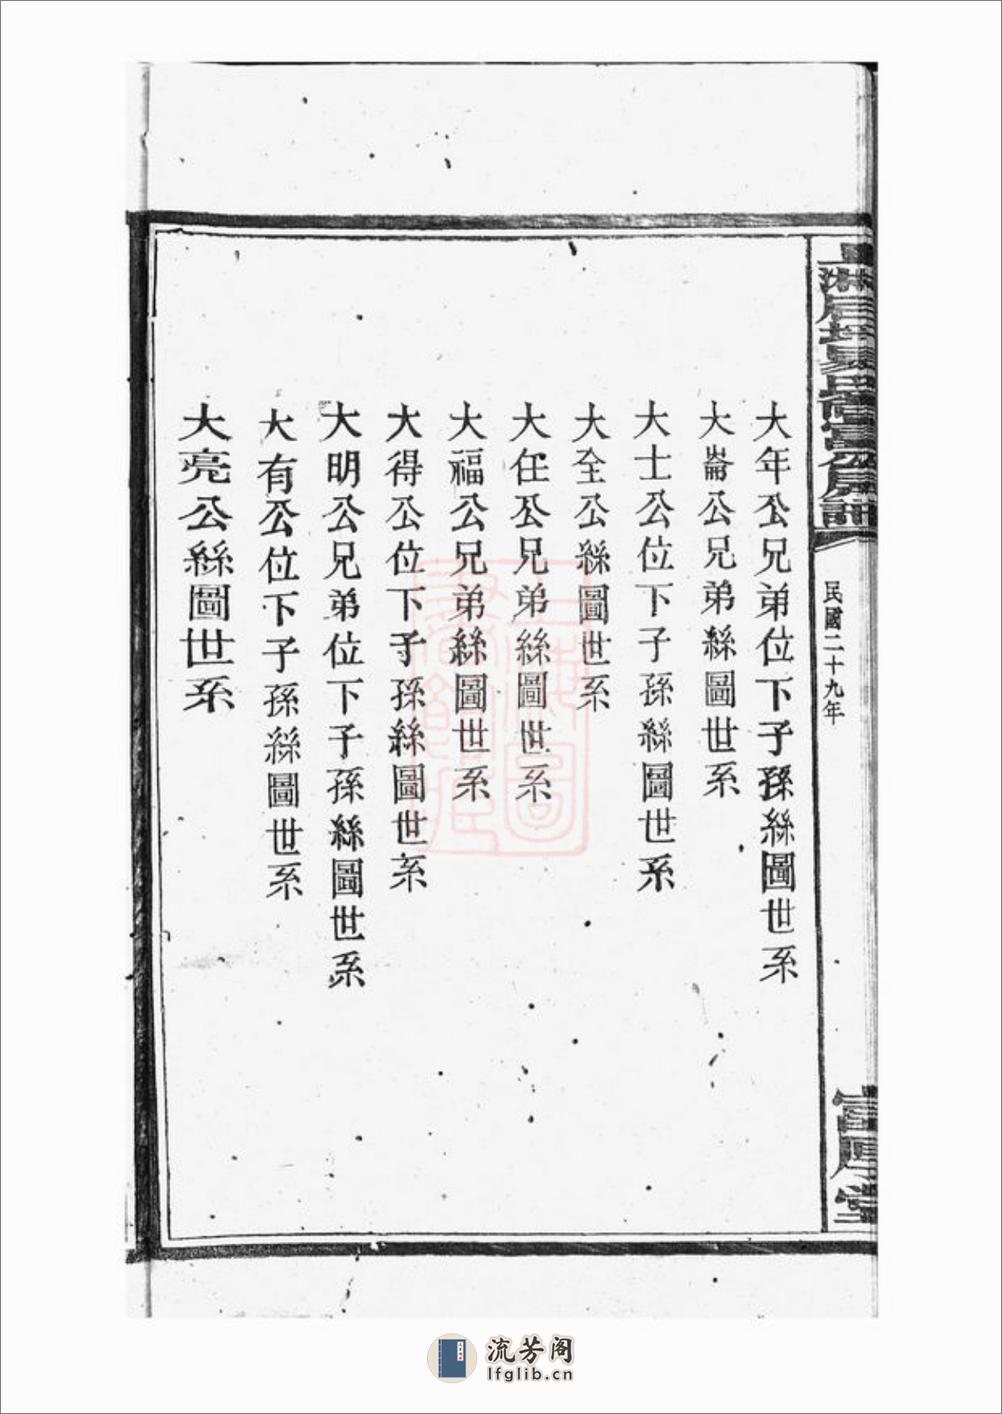 民國二十九年
大年公兄弟位下子孫絲圖世系
大崙公兄弟絲圖世系
大士公位下子孫絲圖世系
大全公絲圖世系
大任公兄弟絲圖世系
大福公兄弟絲圖世系
大得公位下子孫絲圖世系
大明公兄弟位下子孫絲圖世系
大有公位下子孫絲圖世系
大亮公絲圖世系
流芳阁
lfglib.cn